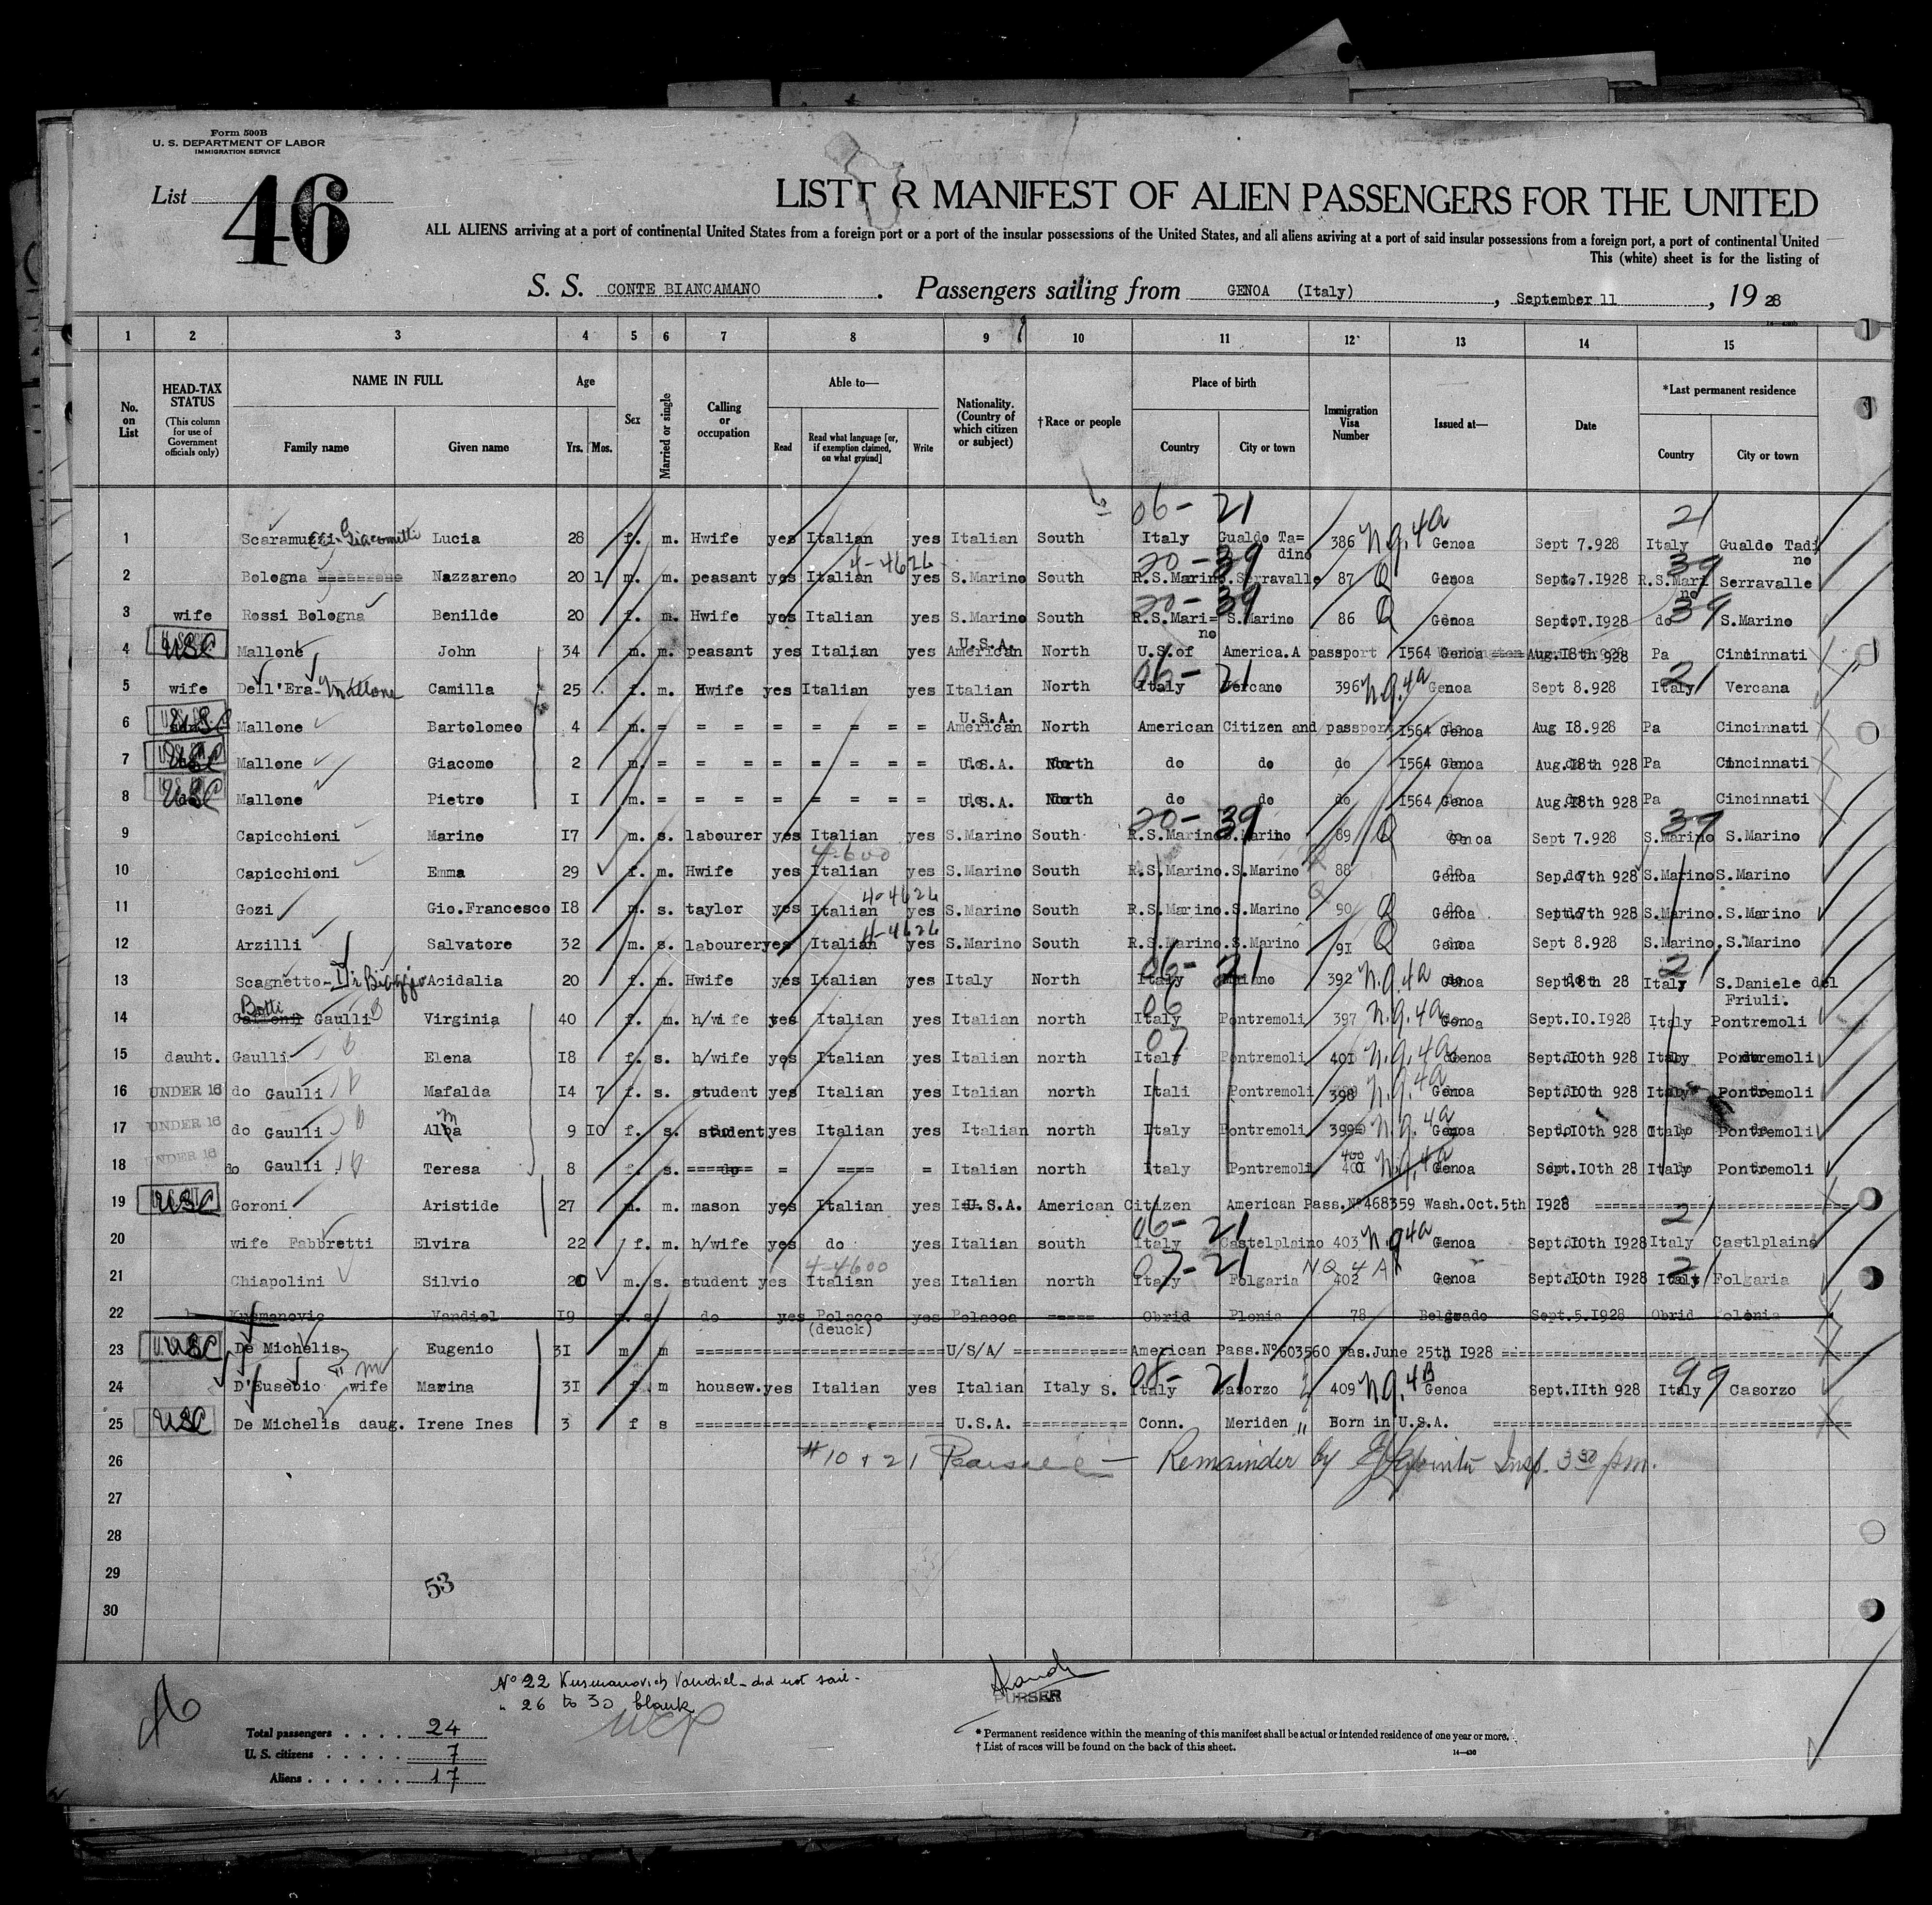 Form 500B
U. S. DEPARTMENT OF LABOR
IMMIGRATION SERVICE
List 46
LIST R MANIFEST OF ALIEN PASSENGERS FOR THE UNITED
ALL ALIENS arriving at a port of continental United States from a foreign port or a port of the insular possessions of the United States, and all aliens arriving at a port of said insular possessions from a foreign port, a port of continental United
This (white) sheet is for the listing of
S. S. CONTE BIANCAMANO . Passengers sailing from GENOA (Italy) , September 11 , 19 28
1 2 3 4 5 6 7 8 9 10 11 12 13 14 15
No. on List
HEAD-TAX STATUS
(This column for use of Government officials only)
NAME IN FULL
Family name Given name
Age
Yrs. Mos.
Sex
Married or single
Calling or occupation
Able to—
Read Read what language [or, if exemption claimed, on what ground] Write
Nationality. (Country of which citizen or subject)
†Race or people
Place of birth
Country City or town
Immigration Visa Number
Issued at—
Date
*Last permanent residence
Country City or town
06- 21 21
1 Scaramucci-Giacometti Lucia 28 f. m. Hwife yes Italian yes Italian South Italy Gualdo Tadino 386 n.q.4a Genoa Sept 7.928 Italy Gualdo Tadino
4-4626 20-39 39
2 Bologna Nazzareno 20 1 m. m. peasant yes Italian yes S.Marino South R.S.Marino.Serravalle 87 Q Genoa Sept.7.1928 R.S.Marino Serravalle
20-39 39
3 wife Rossi Bologna Benilde 20 f. m. Hwife yes Italian yes S.Marino South R.S.Marino S.Marino 86 Q Genoa Sept.7.1928 do S.Marino
4 USC Mallone John 34 m. m. peasant yes Italian yes U.S.A. American North U.S.of America.A passport 1564 Genoa Aug.18th 928 Pa Cincinnati
06- 21 21
5 wife Dell'Era-Mallone Camilla 25 f. m. Hwife yes Italian yes Italian North Italy Vercano 396 n.q.4a Genoa Sept 8.928 Italy Vercana
6 USC Mallone Bartolomeo 4 m. = = = = = = = = U.S.A. American North American Citizen and passport 1564 Genoa Aug 18.928 Pa Cincinnati
7 USC Mallone Giacomo 2 m. = = = = = = = = U.S.A. North do do do 1564 Genoa Aug.18th 928 Pa Cincinnati
8 USC Mallone Pietro 1 m. = = = = = = = = U.S.A. North do do do 1564 Genoa Aug.18th 928 Pa Cincinnati
20- 39 39
9 Capicchioni Marino 17 m. s. labourer yes Italian yes S.Marino South R.S.Marino S.Marino 89 Q Genoa Sept 7.928 S.Marino S.Marino
4-600
10 Capicchioni Emma 29 f. m. Hwife yes Italian yes S.Marino South R.S.Marino.S.Marino 88 Q Genoa Sep.7th 928 S.Marino S.Marino
4-4626
11 Gozi Gio.Francesco 18 m. s. taylor yes Italian yes S.Marino South R.S.Marino.S.Marino 90 Q Genoa Sept.7th 928 S.Marino.S.Marino
4-4626
12 Arzilli Salvatore 32 m. s. labourer yes Italian yes S.Marino South R.S.Marino.S.Marino 91 Q Genoa Sept 8.928 S.Marino.S.Marino
06- 21 21
13 Scagnetto-Di Biaggio Acidalia 20 f. m. Hwife yes Italian yes Italy North Italy 392 n.q.4a Genoa Sept.8th 28 Italy S.Daniele del Friuli.
Botti 06
14 Gaulli B Virginia 40 f. m. h/wife yes Italian yes Italian north Italy Pontremoli 397 n.q.4a Genoa Sept.10.1928 Italy Pontremoli
07
15 dauht. Gaulli B Elena 18 f. s. h/wife yes Italian yes Italian north Italy Pontremoli 401 n.q.4a Genoa Sept.10th 928 Italy Pontremoli
16 UNDER 16 do Gaulli B Mafalda 14 7 f. s. student yes Italian yes Italian north Itali Pontremoli 398 n.q.4a Genoa Sept.10th 928 Italy Pontremoli
17 UNDER 16 do Gaulli B Alma 9 10 f. s. student yes Italian yes Italian north Italy Pontremoli 399 n.q.4a Genoa Sept.10th 928 Italy Pontremoli
18 UNDER 16 do Gaulli B Teresa 8 f. s. ======= = ==== = Italian north Italy Pontremoli 400 n.q.4a Genoa Sept.10th 28 Italy Pontremoli
19 USC Goroni Aristide 27 m. m. mason yes Italian yes U.S.A. American Citizen American Pass.Nº468359 Wash.Oct.5th 1928 ==========
06- 21 21
20 wife Fabbretti Elvira 22 f. m. h/wife yes do yes Italian south Italy Castelplaino 403 n.q.4a Genoa Sept.10th 1928 Italy Castlplaina
4-4600 07-21 NQ 4A 21
21 Chiapolini Silvio 20 m. s. student yes Italian yes Italian north Italy Folgaria 402 Genoa Sept.10th 1928 Italy Folgaria
22 Kusmanovic Vandiel 19 m. s. do yes Polacco (deuck) yes Polacca ----- Obrid Plonia 78 Belgrado Sept.5.1928 Obrid Polonia
23 USC De Michelis Eugenio 31 m m ========== U/S/A/ ========== American Pass.Nº603560 Was.June 25th 1928 ==========
08- 21 99
24 D'Eusebio " M wife Marina 31 f. m housew. yes Italian yes Italian Italy S. Italy Casorzo 409 n.q.4B Genoa Sept.11th 928 Italy Casorzo
25 USC De Michelis daug. Irene Ines 3 f s ========== U.S.A. ========== Conn. Meriden " Born in U.S.A. ==========
26 #10 + 21 — Remainder by Insp. 3 30 pm.
27
28
29
53
30
Nº 22 Kusmanovich Vandiel - did not sail -
" 26 to 30 blank
PURSER
Total passengers . . . . 24
U. S. citizens . . . . . 7
Aliens . . . . . . 17
* Permanent residence within the meaning of this manifest shall be actual or intended residence of one year or more.
† List of races will be found on the back of this sheet.
14—430